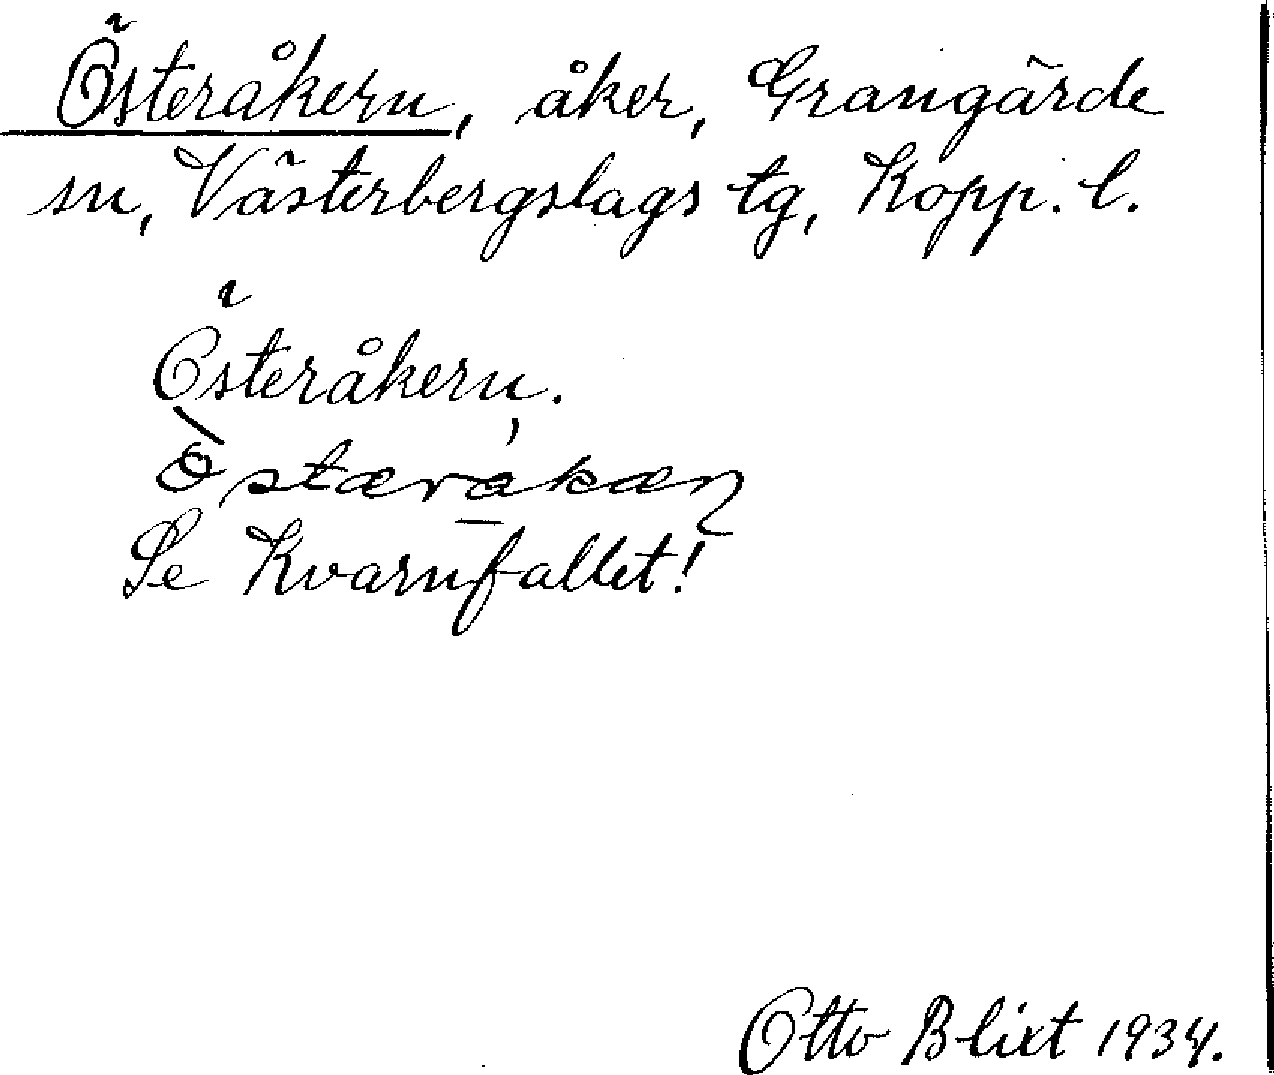 Österåkern, åker, Grangärde
sn, Västerbergslags tg, Kopp. l.
Österåkern.
Se Kvarnfallet!
Otto Blixt 1934.